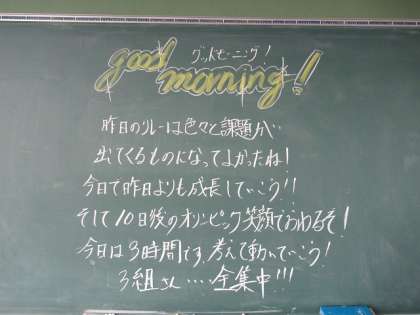 グッドモーニング！
good
morning!
昨日のリレーは色々と課題が…
出てくるものになってよかったね！
今日で昨日よりも成長していこう!!
そして10日後のオリンピック笑顔でおわるぞ！
今日は3時間です。考えて動いていこう！
3組さん…全集中!!!